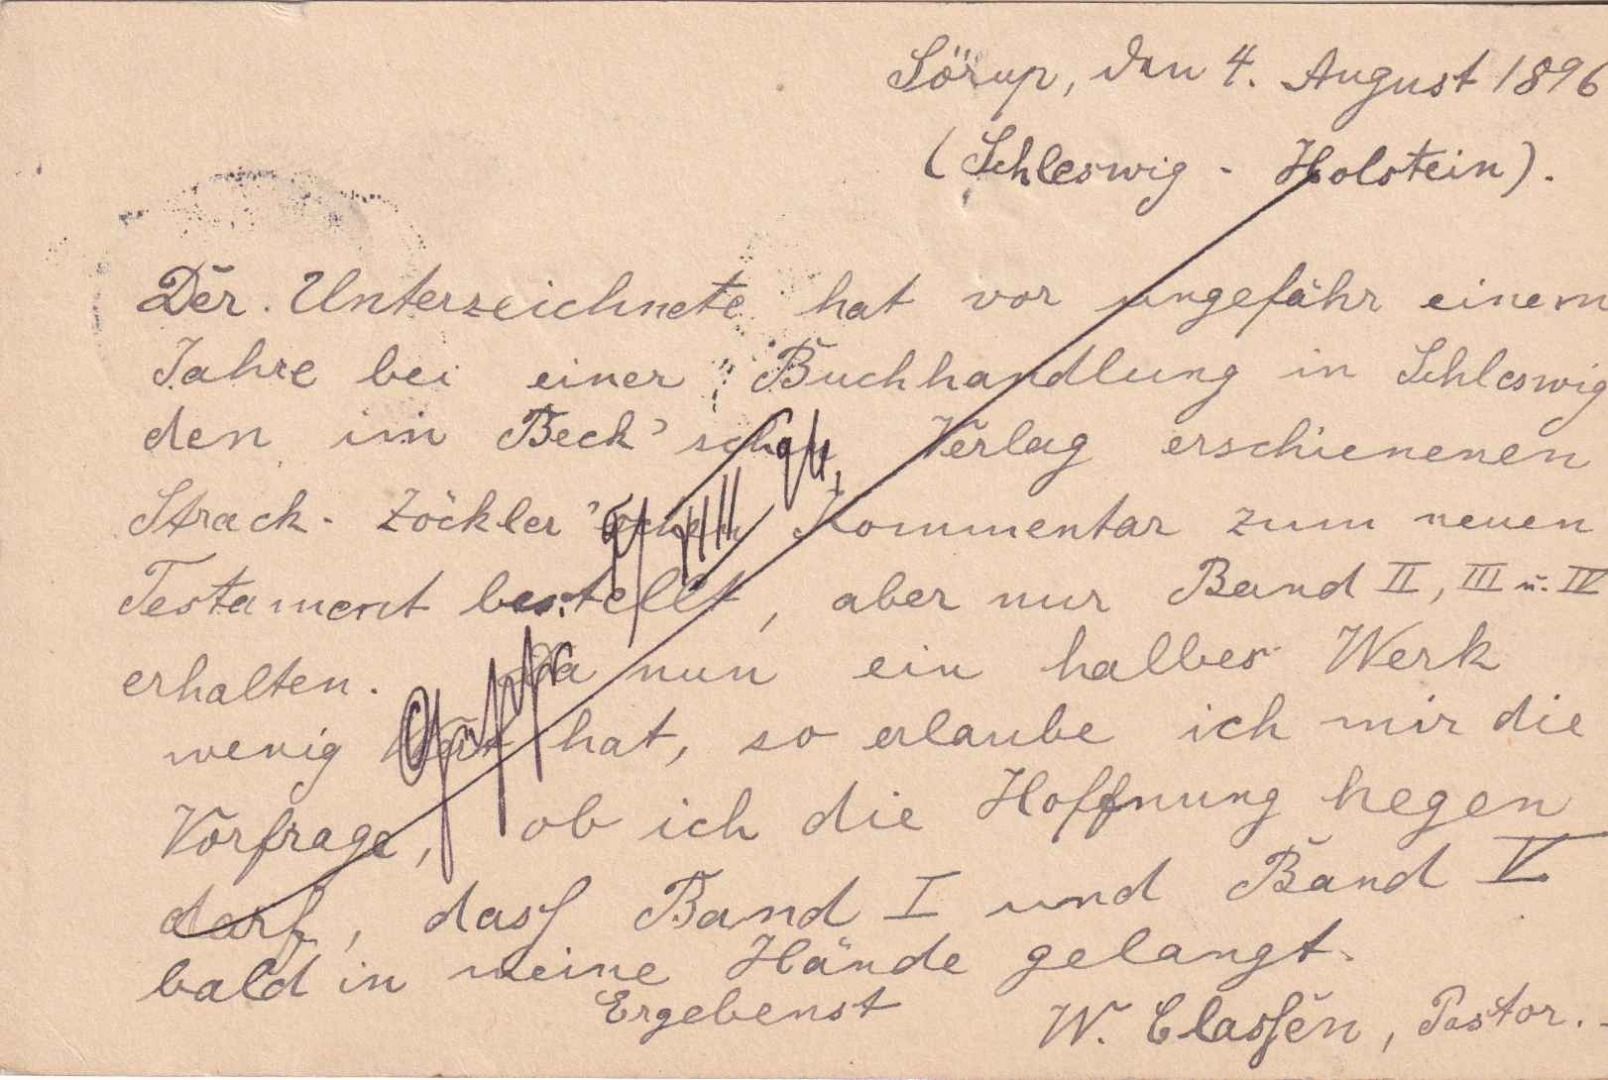 Sörup, den 4. August 1896
(Schleswig - Holstein).
Der Unterzeichnete hat vor ungefähr einem
Jahre bei einer Buchhandlung in Schleswig
den im Beck'schen Verlag erschienenen
Strack-Zöckler'schen Kommentar zum neuen
Testament bestellt, aber nur Band II, III u. IV
erhalten. Da nun ein halbes Werk
wenig Wert hat, so erlaube ich mir die
Vorfrage, ob ich die Hoffnung hegen
darf, dass Band I und Band V
bald in meine Hände gelangt.
Ergebenst
W. Classen, Pastor.